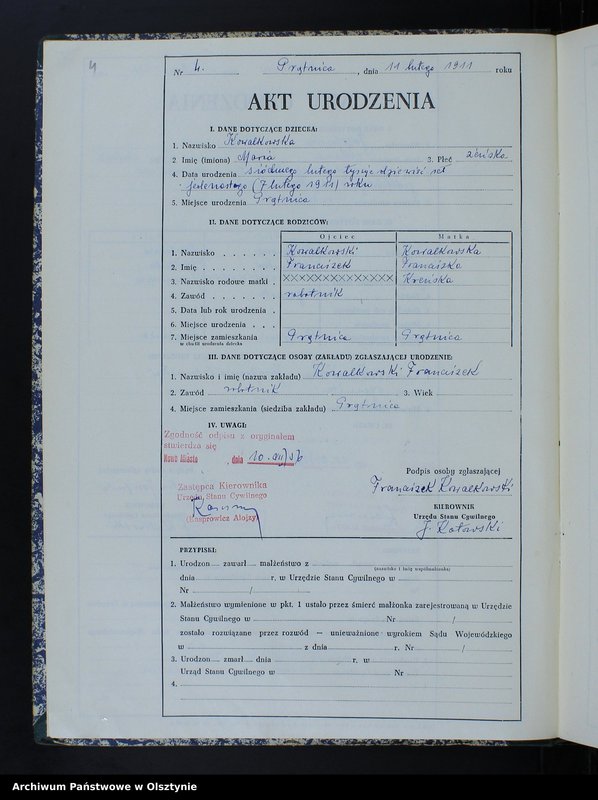 4
Nr 4. Prątnica, dnia 11 lutego 1911 roku
AKT URODZENIA
I. DANE DOTYCZĄCE DZIECKA:
1. Nazwisko Kowalkowska
2. Imię (imiona) Maria 3. Płeć żeńska
4. Data urodzenia siódmego lutego tysiąc dziewięć set
jedenastego (7 lutego 1911) roku
5. Miejsce urodzenia Prątnica
II. DANE DOTYCZĄCE RODZICÓW:
Ojciec Matka
1. Nazwisko Kowalkowski Kowalkowska
2. Imię Franciszek Franciszka
3. Nazwisko rodowe matki XXXXXXXXXXXXX Kreńska
4. Zawód robotnik
5. Data lub rok urodzenia
6. Miejsce urodzenia
7. Miejsce zamieszkania Prątnica Prątnica
w chwili urodzenia dziecka
III. DANE DOTYCZĄCE OSOBY (ZAKŁADU) ZGŁASZAJĄCEJ URODZENIE:
1. Nazwisko i imię (nazwa zakładu) Kowalkowski Franciszek
2. Zawód robotnik 3. Wiek
4. Miejsce zamieszkania (siedziba zakładu) Prątnica
IV. UWAGI:
Zgodność odpisu z oryginałem
stwierdza się
Nowe Miasto, dnia 10.
Podpis osoby zgłaszającej
Zastępca Kierownika
Franciszek Kowalkowski
Urzędu Stanu Cywilnego
KIEROWNIK
Urzędu Stanu Cywilnego
(Kasprowicz Alojzy)
J. Ratowski
PRZYPISKI:
1. Urodzon zawarł małżeństwo z
(nazwisko i imię współmałżonka)
dnia r. w Urzędzie Stanu Cywilnego w
Nr /
2. Małżeństwo wymienione w pkt. 1 ustało przez śmierć małżonka zarejestrowaną w Urzędzie
Stanu Cywilnego w Nr /
zostało rozwiązane przez rozwód — unieważnione wyrokiem Sądu Wojewódzkiego
w z dnia r. Nr /
3. Urodzon zmarł dnia r. w
Urząd Stanu Cywilnego w Nr
4.
Archiwum Państwowe w Olsztynie